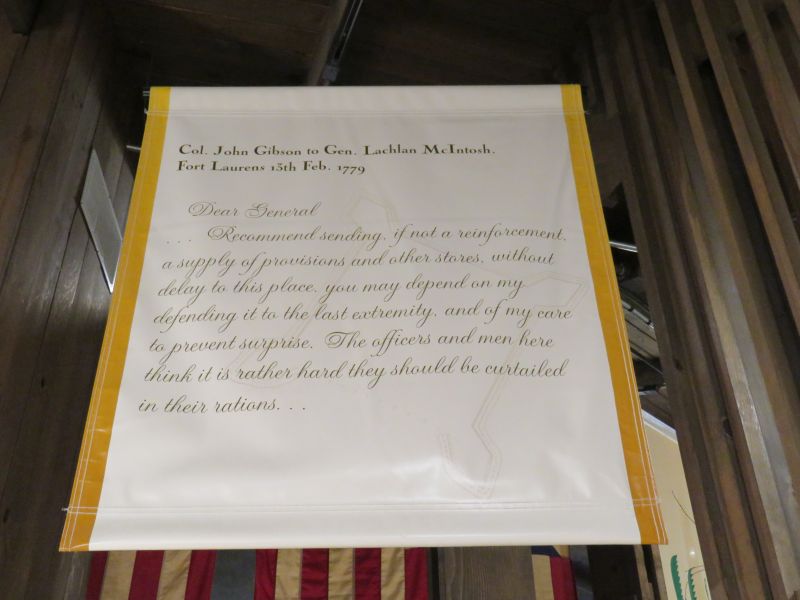 Col. John Gibson to Gen. Lachlan McIntosh.
Fort Laurens 13th Feb. 1779
Dear General
. . . Recommend sending, if not a reinforcement,
a supply of provisions and other stores, without
delay to this place, you may depend on my
defending it to the last extremity, and of my care
to prevent surprise. The officers and men here
think it is rather hard they should be curtailed
in their rations. . .